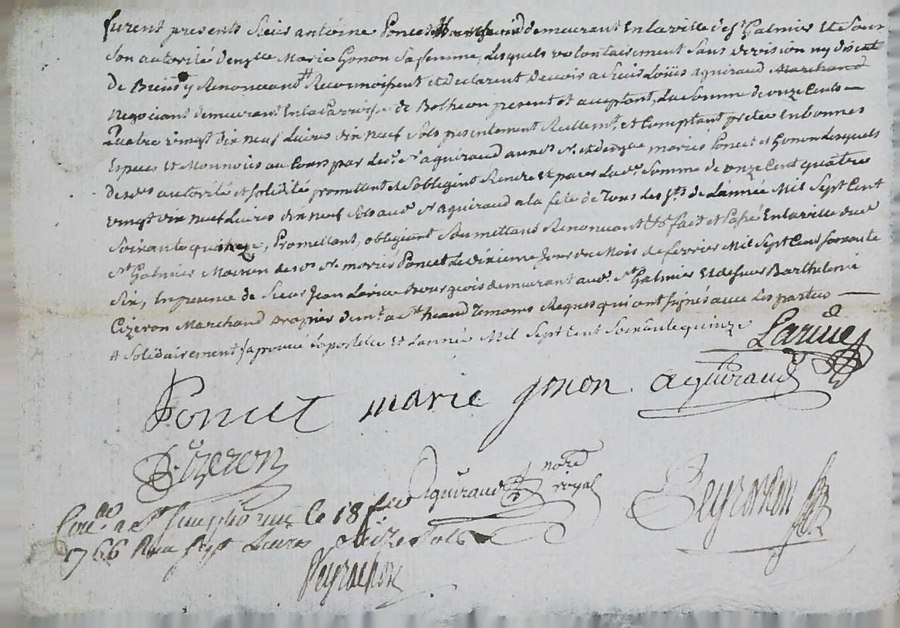 furent présents Sieur antoine Poncet demeurant En la ville de St Galmier Et Sour
Son autorité dlle Marie Gonon Sa femme, Lesquels volontairement Sans division ny discut
de Biens y Renonceant Reconnoissent et declarent devoir a Sieur Loüis aguiraud Marchand
Negociant demeurant En la Parroisse de Botheon present et acceptant, La Somme de onze Cents
Quatre vingt dix neuf Livres dix neuf Sols presentement Réellemt et Comptant pretée En bonnes
Especes Et Monnoies au Cours par Led. Sr aguiraud auxd. mariés Poncet et Gonon Lesquels
de autorité et solidité promettent et S'obligent Rendre Et paier Lad. Somme de onze Cent quatre
vingt dix neuf Livres dix neuf Sols aud. Sr aguiraud a la fete de Tous Les Sts de L'année Mil Sept Cent
Soixante quinze, Promettant, obligeant Soumettant Renonceant &c fait et Passé En la ville dud.
St Galmier Maison des mariés Poncet Le dixieme Jour du Mois de fevrier Mil Sept Cent soixante
Six, En presence de Sieur Jean Larive Bourgeois demeurant aud. St Galmier Et de Sieur Barthelemi
Cizeron Marchand Drapier demt a St heand Temoins Requis qui ont signés avec Les parties
# Solidairement Japrouve Et L'année Mil Sept Cent Soixante quinze
Larive
Poncet marie gonon aguiraud
B. Cizeron
Aguiraud nore royal
Peyrachon
Conlé a St Simphorien le 18 fev
1766 Reçu Sept Livres Seize Sols
Peyrachon